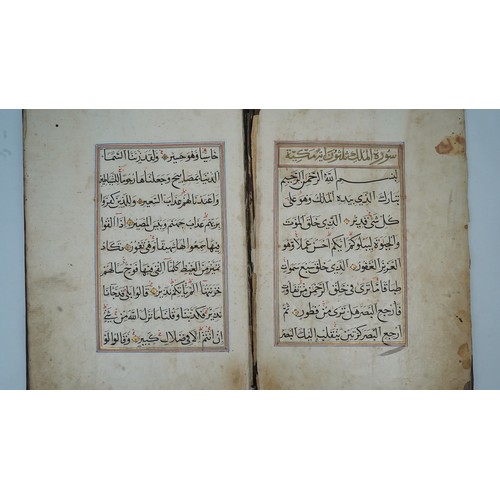 سورة الملك ثلثون اية مكية
بسم الله الرحمن الرحيم
تبارك الذي بيده الملك وهو على
كل شئ قدير الذي خلق الموت
والحيوة ليبلوكم ايكم احسن عملا وهو
العزيز الغفور الذي خلق سبع سموات
طباقا ما ترى في خلق الرحمن من تفاوت
فارجع البصر هل ترى من فطور ثم
ارجع البصر كرتين ينقلب اليك البصر
خاسئا وهو حسير ولقد زينا السماء
الدنيا بمصابيح وجعلناها رجوما للشياطين
واعتدنا لهم عذاب السعير وللذين كفروا
بربهم عذاب جهنم وبئس المصير اذا القوا
فيها سمعوا لها شهيقا وهي تفور تكاد
تميز من الغيظ كلما القي فيها فوج سالهم
خزنتها الم ياتكم نذير قالوا بلى قد جاءنا
نذير فكذبنا وقلنا ما نزل الله من شئ
ان انتم الا في ضلال كبير وقالوا لو